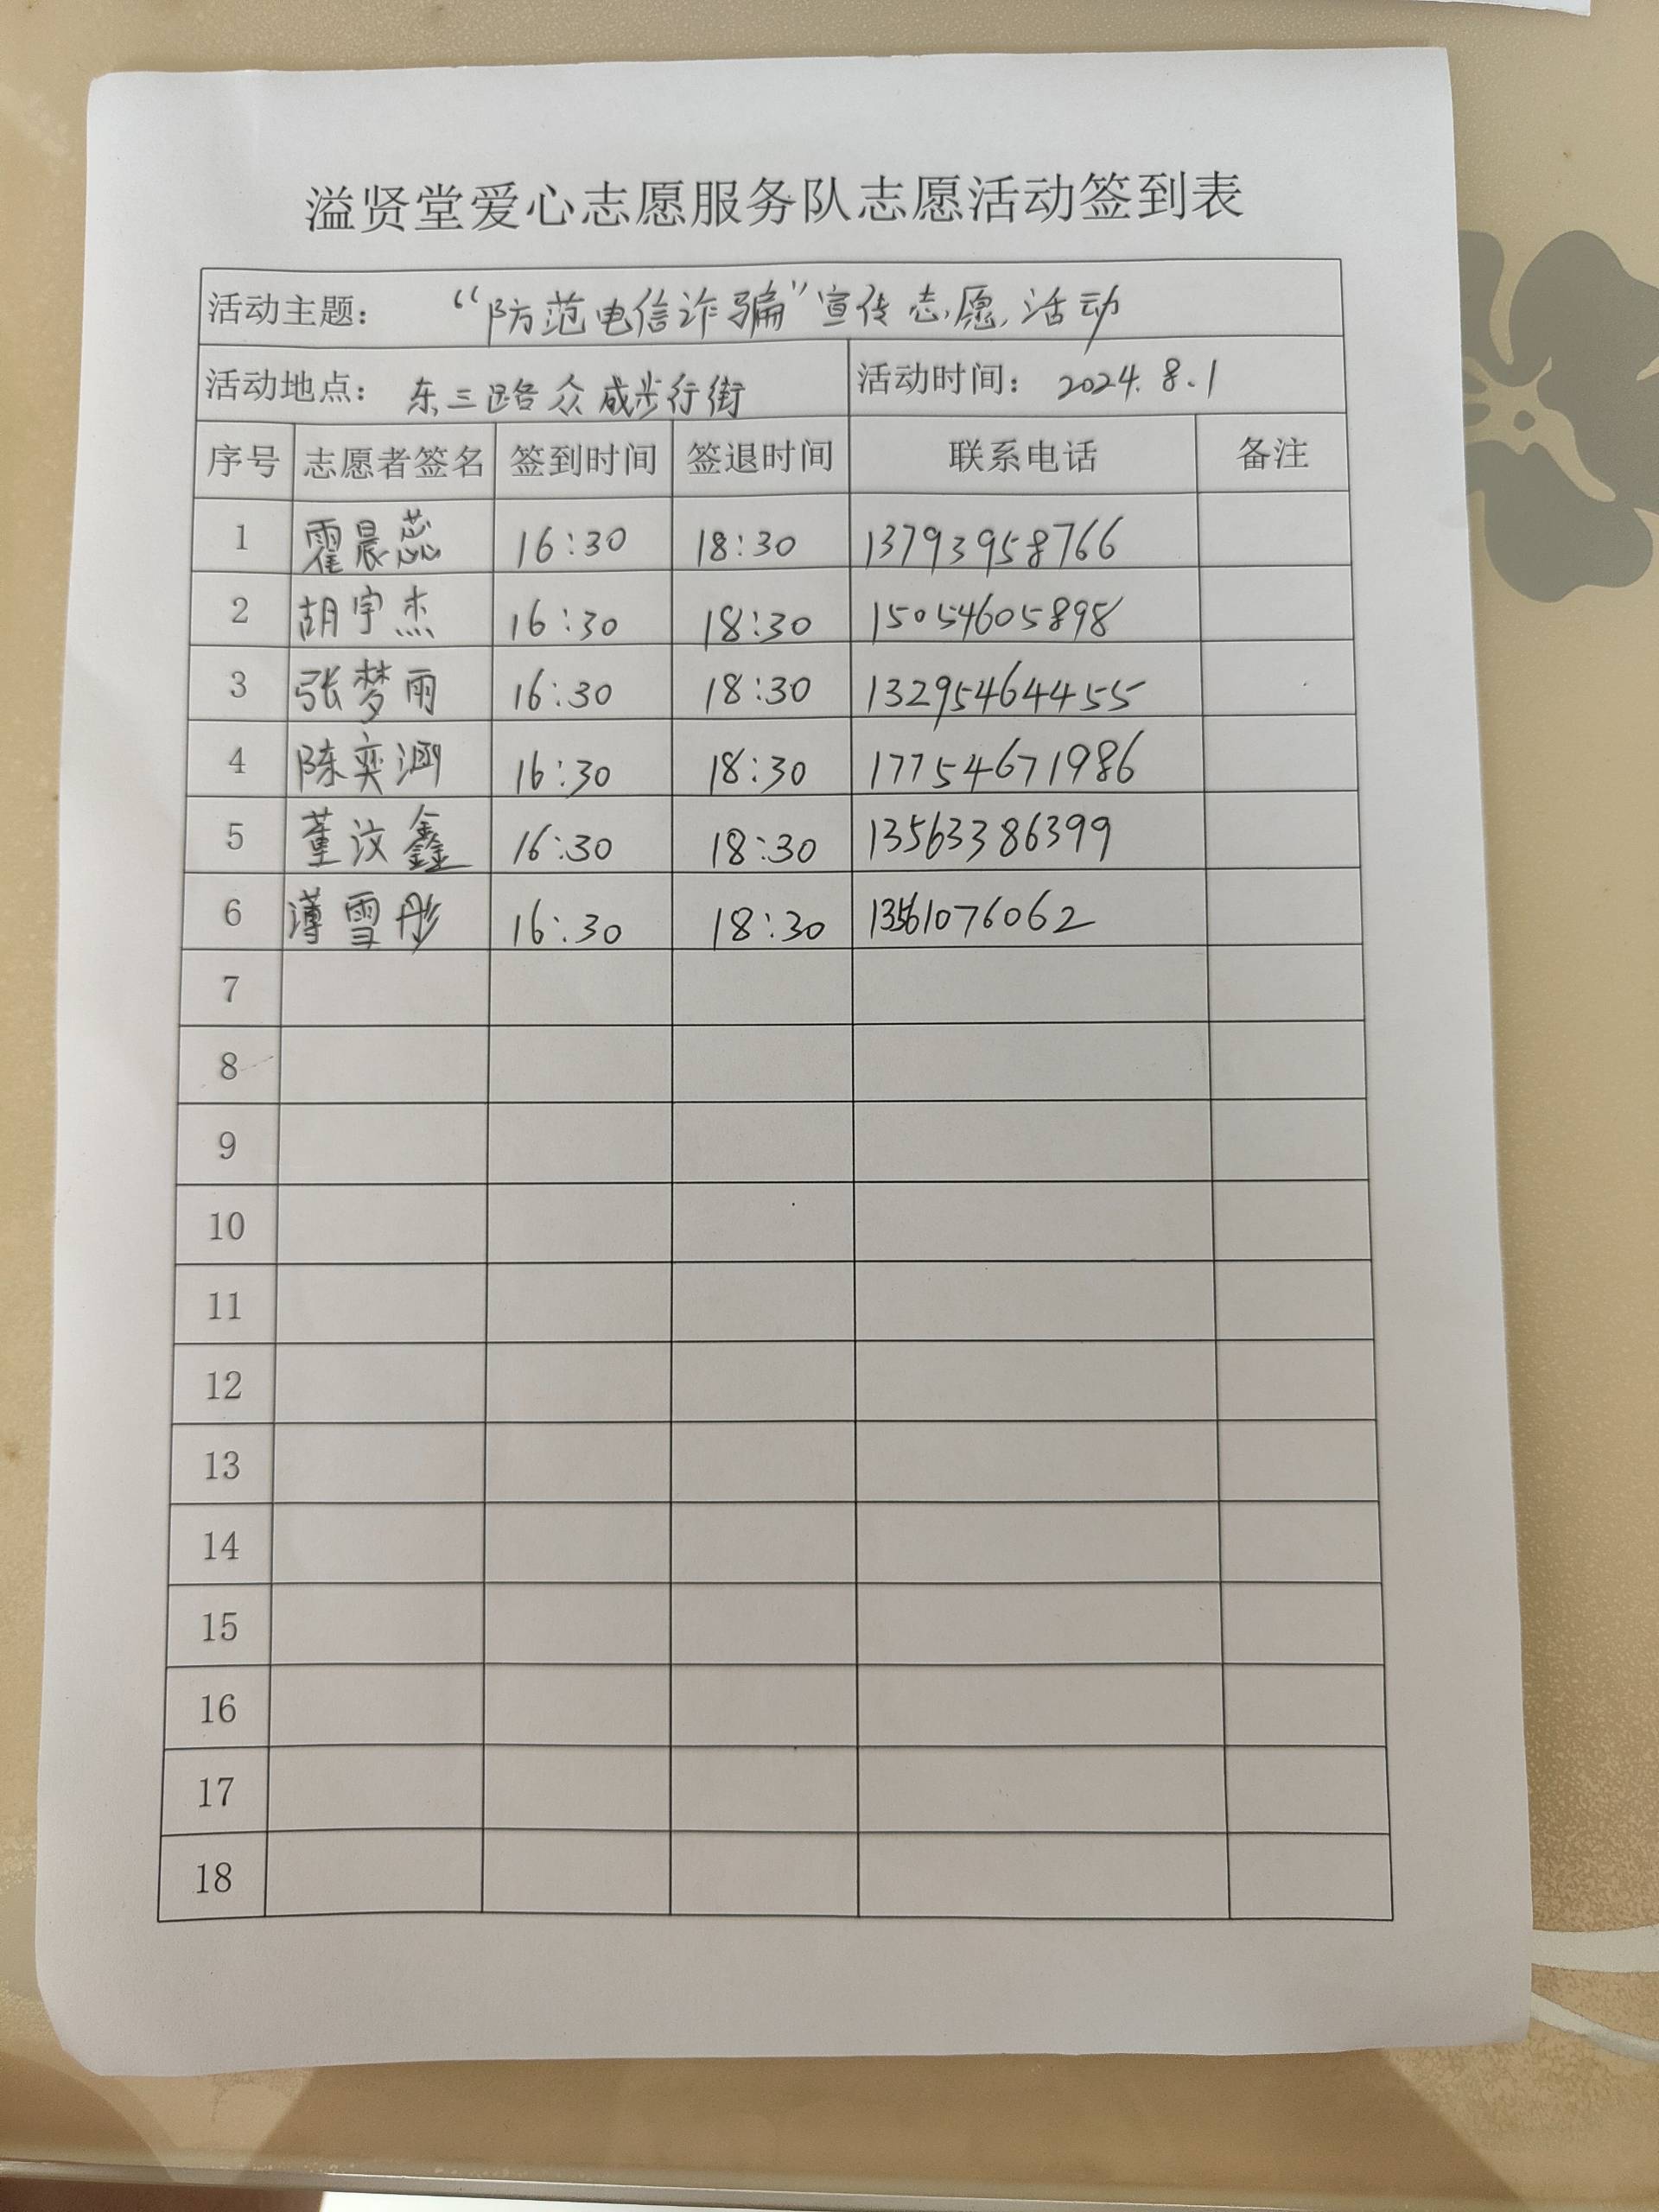 溢贤堂爱心志愿服务队志愿活动签到表
活动主题： “防范电信诈骗”宣传志愿活动
活动地点： 东三路众成步行街 活动时间： 2024.8.1
序号 志愿者签名 签到时间 签退时间 联系电话 备注
1 霍晨蕊 16:30 18:30 13793958766
2 胡宇杰 16:30 18:30 15054605898
3 张梦雨 16:30 18:30 13295464455
4 陈奕涵 16:30 18:30 17754671986
5 董汶鑫 16:30 18:30 13563386399
6 薄雪彤 16:30 18:30 13561076062
7
8
9
10
11
12
13
14
15
16
17
18